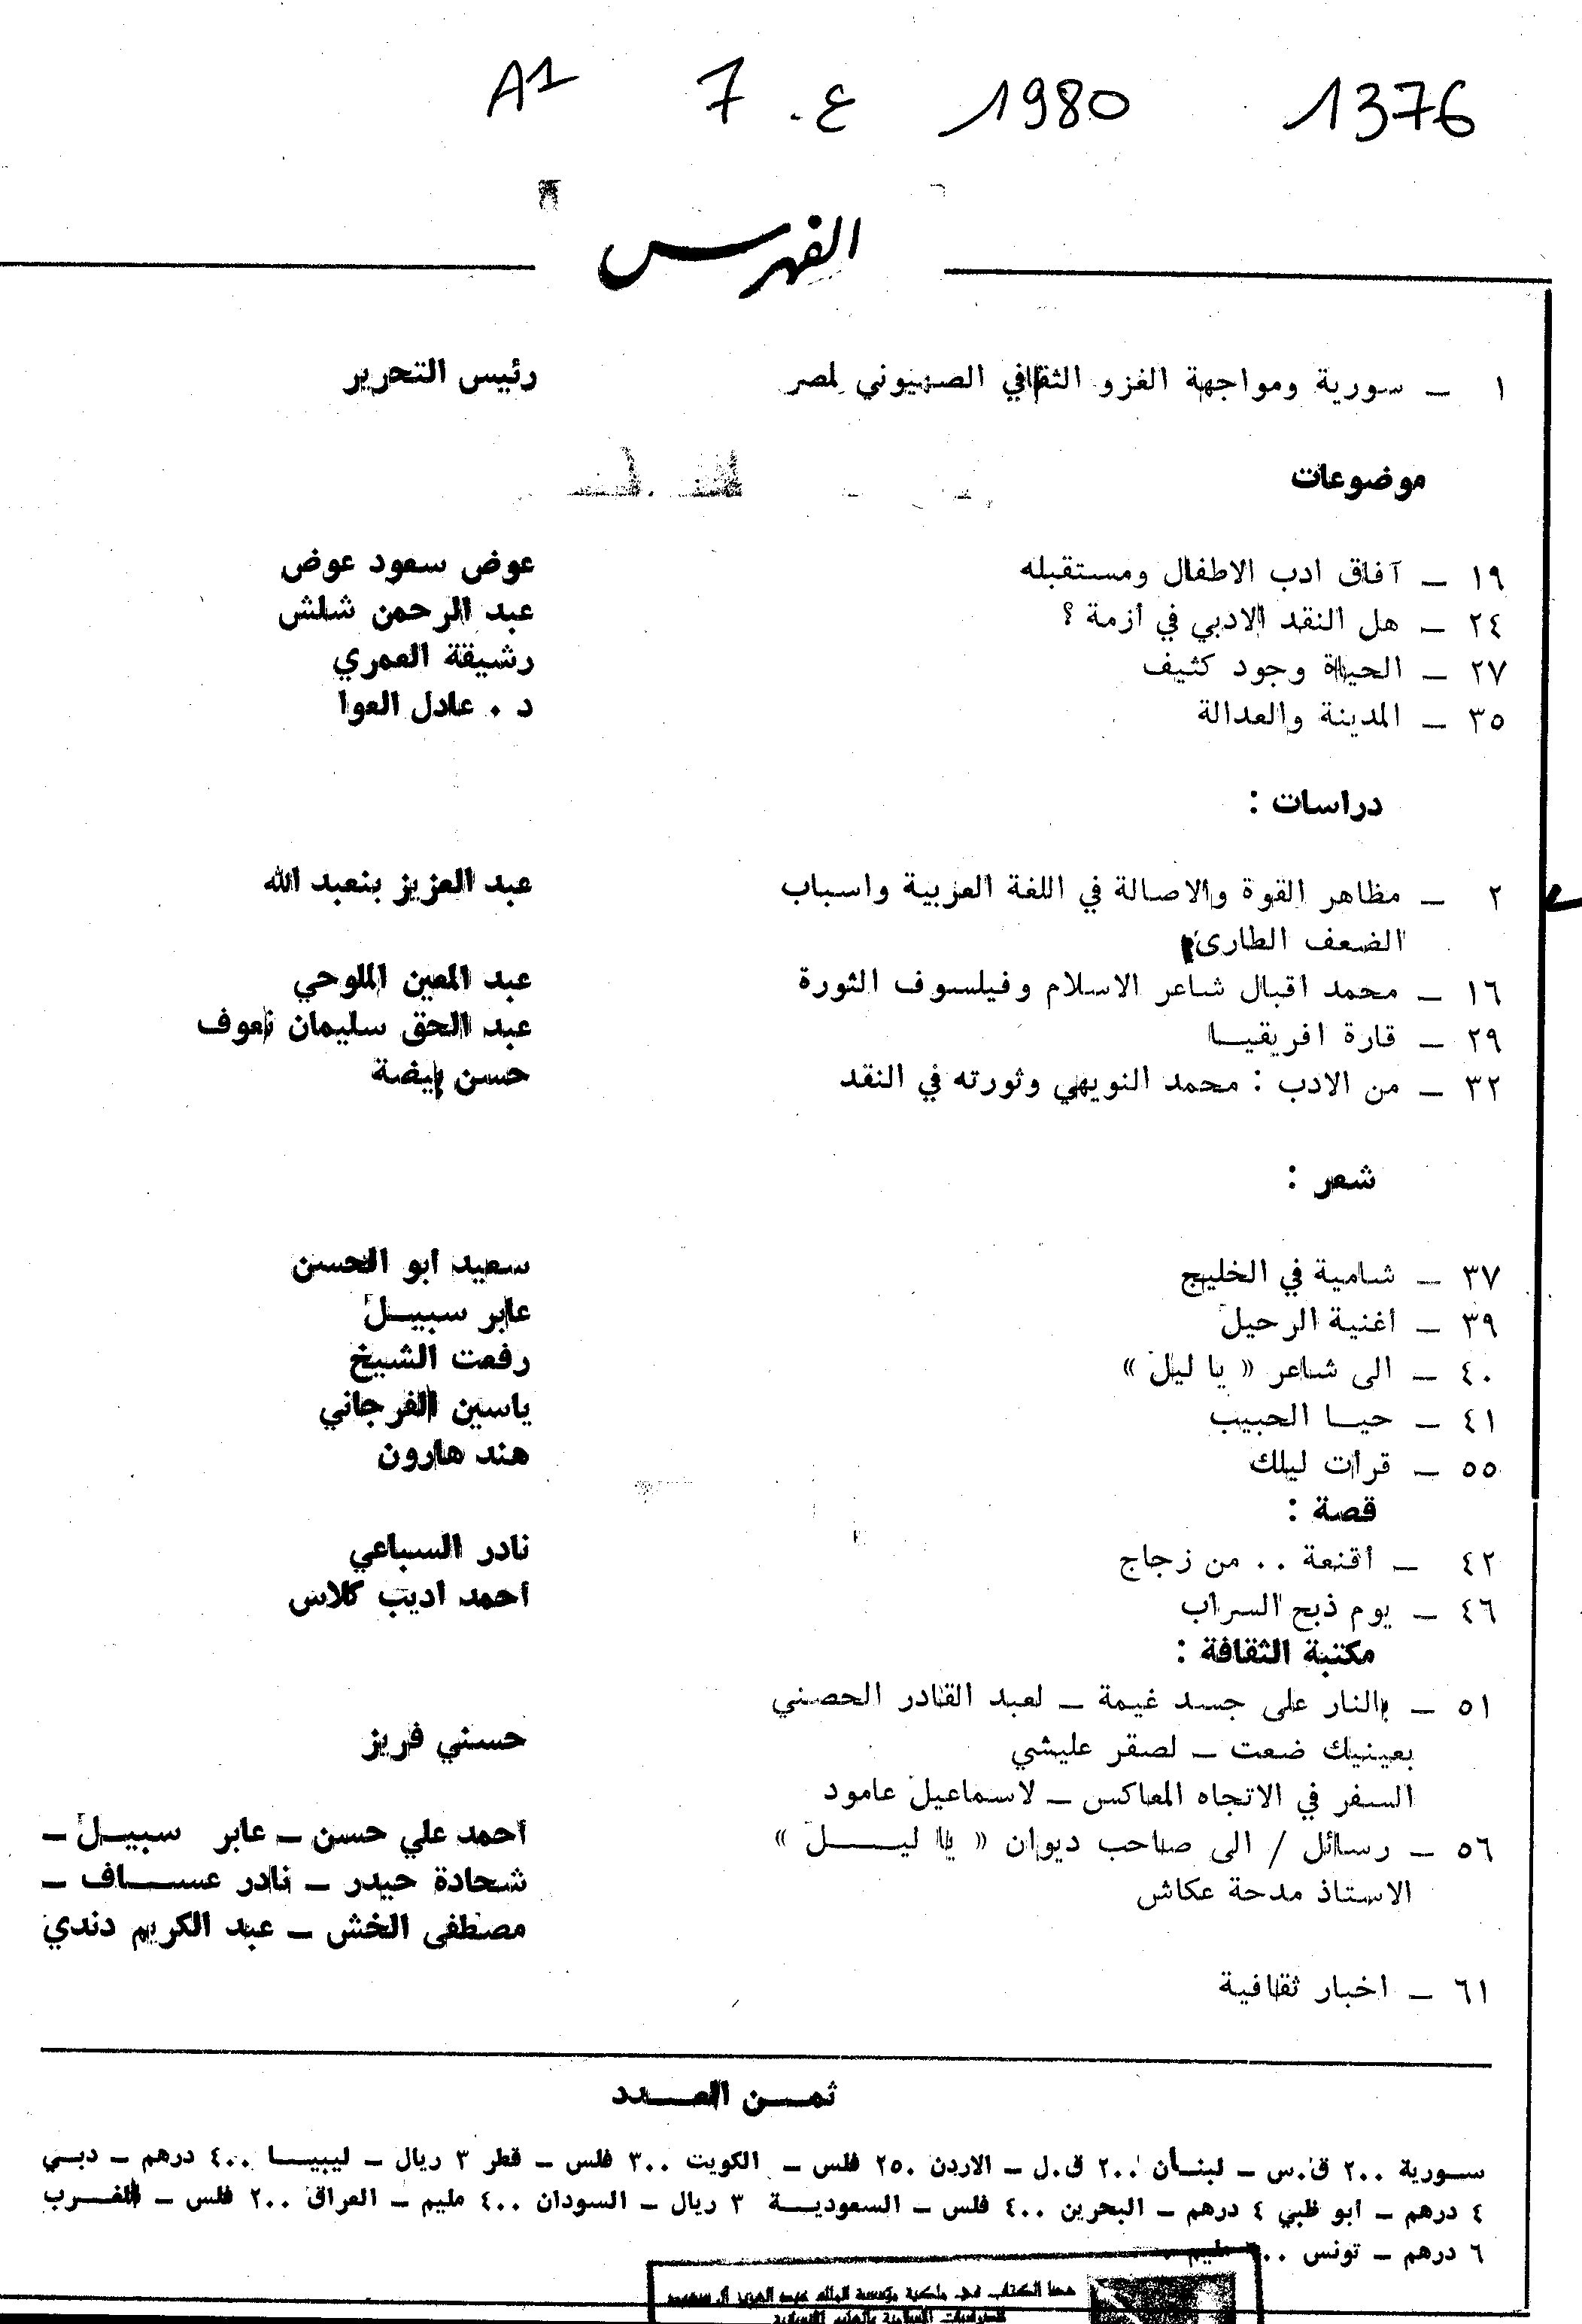 A1 7 ع. 1980 1376
الفهرس
١ ــ سورية ومواجهة الغزو الثقافي الصهيوني لمصر رئيس التحرير
موضوعات
١٩ ــ آفاق ادب الاطفال ومستقبله عوض سعود عوض
٢٤ ــ هل النقد الادبي في أزمة ؟ عبد الرحمن شلش
٢٧ ــ الحياة وجود كثيف رشيقة العمري
٣٥ ــ المدينة والعدالة د . عادل العوا
دراسات :
٢ ــ مظاهر القوة والاصالة في اللغة العربية واسباب عبد العزيز بنعبد الله
الضعف الطارىء
١٦ ــ محمد اقبال شاعر الاسلام وفيلسوف الثورة عبد المعين الملوحي
٢٩ ــ قارة افريقيــا عبد الحق سليمان نعوف
٣٢ ــ من الادب : محمد النويهي وثورته في النقد حسن بيضة
شعر :
٣٧ ــ شامية في الخليج سعيد ابو الحسن
٣٩ ــ اغنية الرحيل عابر سبيــل
٤٠ ــ الى شاعر « يا ليل » رفعت الشيخ
٤١ ــ حيــا الحبيب ياسين الفرجاني
٥٥ ــ قرأت ليلك هند هارون
قصة :
٤٢ ــ أقنعة .. من زجاج نادر السباعي
٤٦ ــ يوم ذبح السراب احمد اديب كلاس
مكتبة الثقافة :
٥١ ــ بالنار على جسد غيمة ــ لعبد القادر الحصني
بعينيك ضعت ــ لصقر عليشي حسني فريز
السفر في الاتجاه المعاكس ــ لاسماعيل عامود
٥٦ ــ رسائل / الى صاحب ديوان « يا ليــــل » احمد علي حسن ــ عابر سبيــل ــ
الاستاذ مدحة عكاش شحادة حيدر ــ نادر عســــاف ــ
مصطفى الخش ــ عبد الكريم دندي
٦١ ــ اخبار ثقافية
ثمــن العــدد
سـورية ٢٠٠ ق.س ــ لبنــان ٢٠٠ ق.ل ــ الاردن ٢٥٠ فلس ــ الكويت ٣٠٠ فلس ــ قطر ٣ ريال ــ ليبيــا ٤٠٠ درهم ــ دبـي
٤ درهم ــ ابو ظبي ٤ درهم ــ البحرين ٤٠٠ فلس ــ السعوديــة ٣ ريال ــ السودان ٤٠٠ مليم ــ العراق ٢٠٠ فلس ــ المغــرب
٦ درهم ــ تونس مليم
هذا الكتاب في ملكية مؤسسة الملك عبد العزيز آل سعود
للدراسات الإسلامية والعلوم الإنسانية